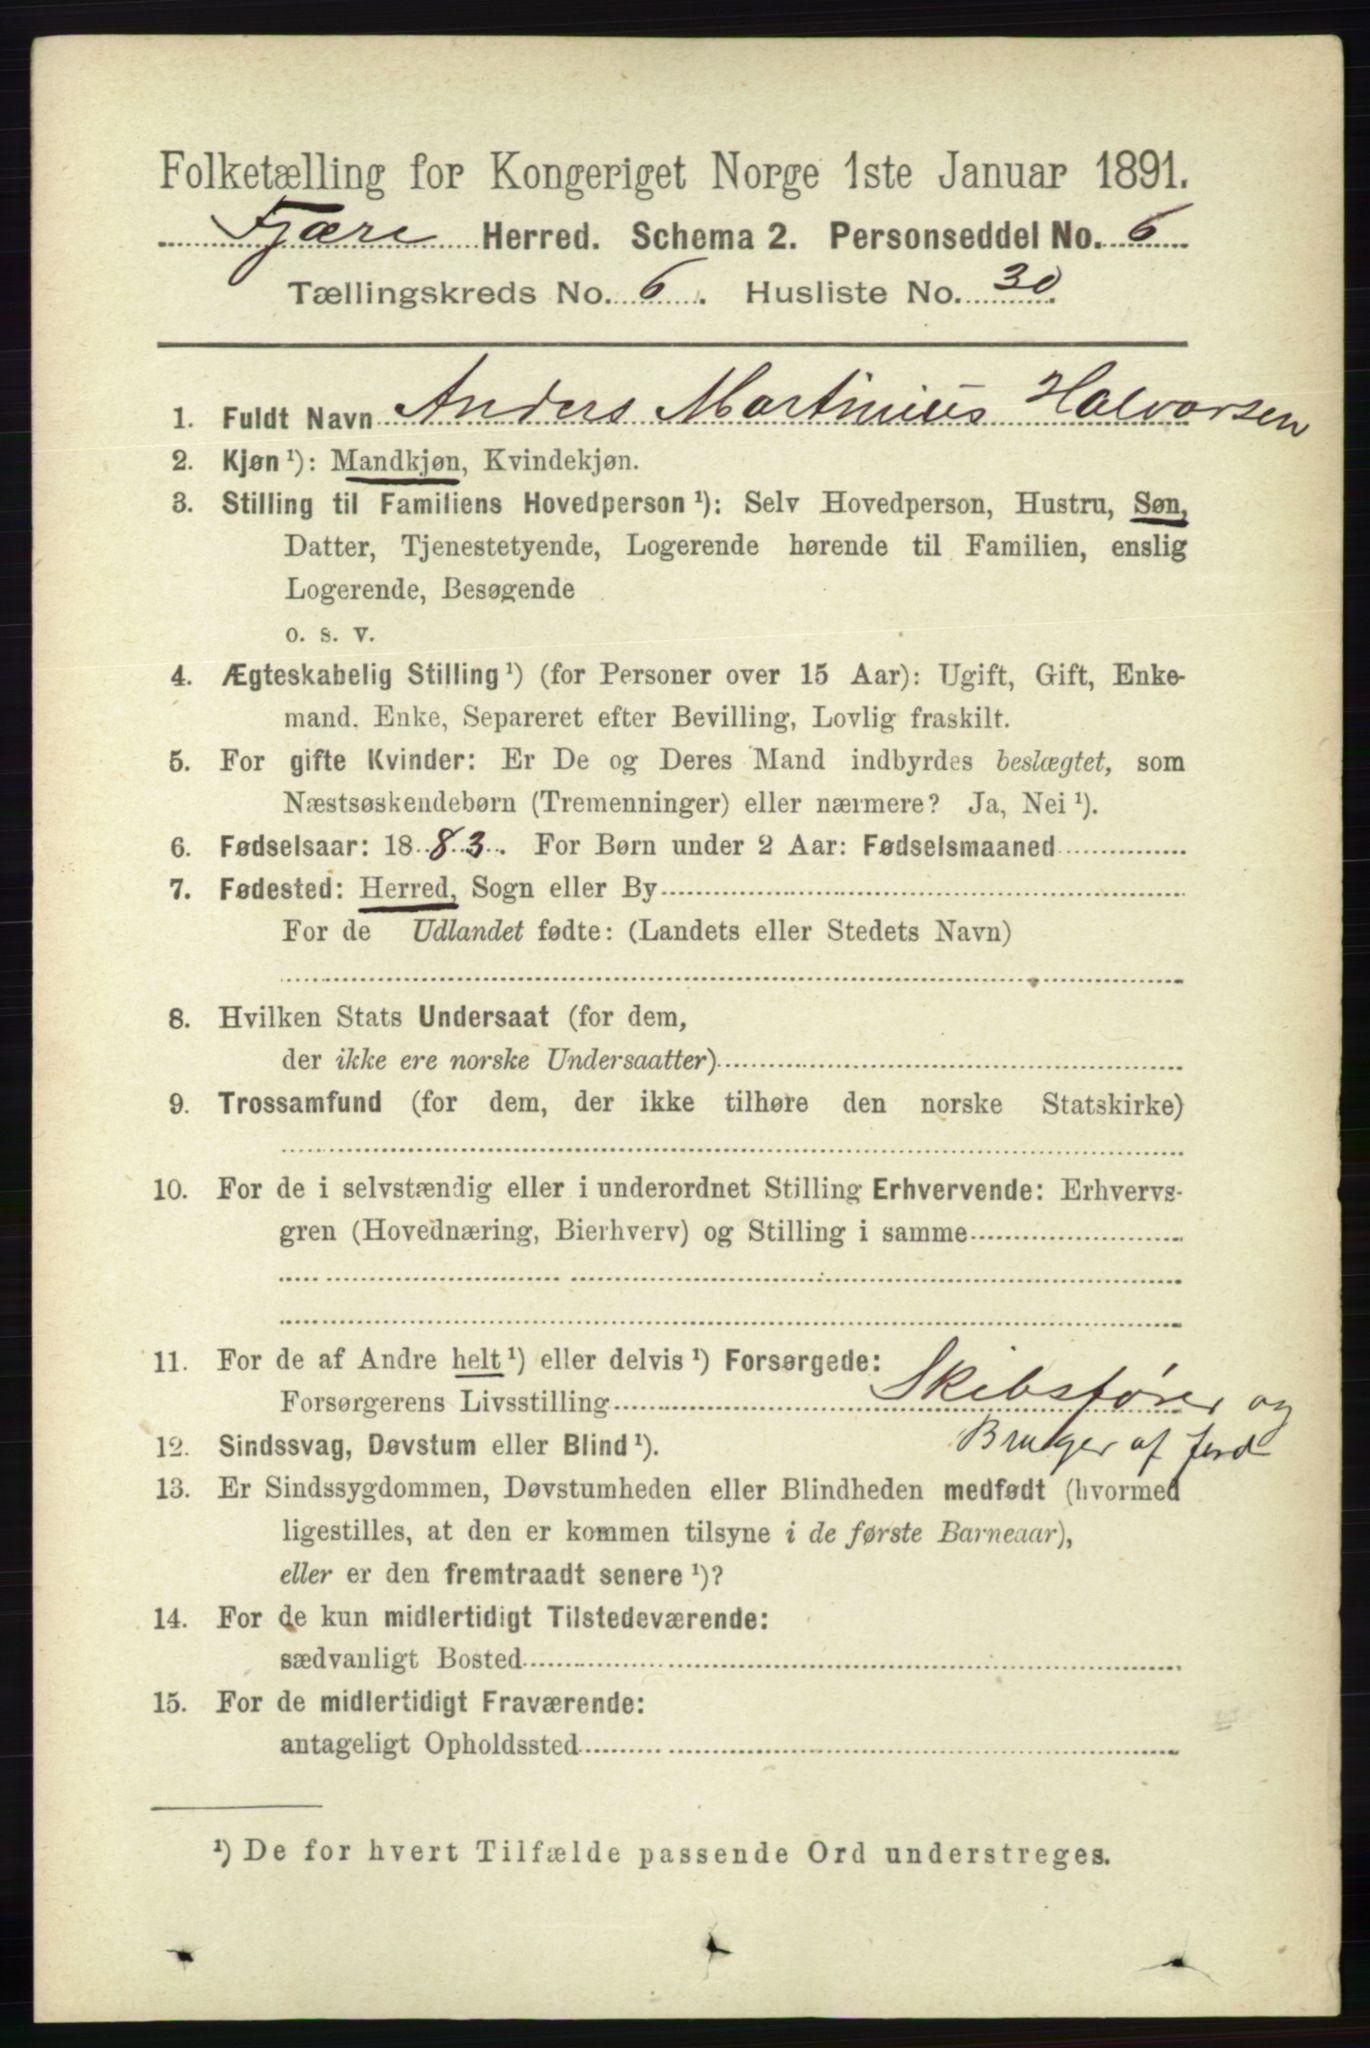 Folketælling for Kongeriget Norge 1ste Januar 1891.
Fjære Herred. Schema 2. Personseddel No. 6
Tællingskreds No. 6. Husliste No. 30.
1. Fuldt Navn Anders Martinius Halvorsen
2. Kjøn ¹): Mandkjøn, Kvindekjøn.
3. Stilling til Familiens Hovedperson ¹): Selv Hovedperson, Hustru, Søn,
Datter, Tjenestetyende, Logerende hørende til Familien, enslig
Logerende, Besøgende
o. s. v.
4. Ægteskabelig Stilling ¹) (for Personer over 15 Aar): Ugift, Gift, Enke-
mand. Enke, Separeret efter Bevilling, Lovlig fraskilt.
5. For gifte Kvinder: Er De og Deres Mand indbyrdes beslægtet, som
Næstsøskendebørn (Tremenninger) eller nærmere? Ja, Nei ¹).
6. Fødselsaar: 1883. For Børn under 2 Aar: Fødselsmaaned
7. Fødested: Herred, Sogn eller By
For de Udlandet fødte: (Landets eller Stedets Navn)
8. Hvilken Stats Undersaat (for dem,
der ikke ere norske Undersaatter)
9. Trossamfund (for dem, der ikke tilhøre den norske Statskirke)
10. For de i selvstændig eller i underordnet Stilling Erhvervende: Erhvervs-
gren (Hovednæring, Bierhverv) og Stilling i samme
11. For de af Andre helt ¹) eller delvis ¹) Forsørgede:
Forsørgerens Livsstilling Skibsfører og
Bruger af jord
12. Sindssvag, Døvstum eller Blind ¹).
13. Er Sindssygdommen, Døvstumheden eller Blindheden medfødt (hvormed
ligestilles, at den er kommen tilsyne i de første Barneaar),
eller er den fremtraadt senere ¹)?
14. For de kun midlertidigt Tilstedeværende:
sædvanligt Bosted
15. For de midlertidigt Fraværende:
antageligt Opholdssted
¹) De for hvert Tilfælde passende Ord understreges.